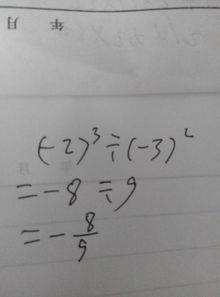 年 月
(-2)³÷(-3)²
=-8÷9
=-8/9